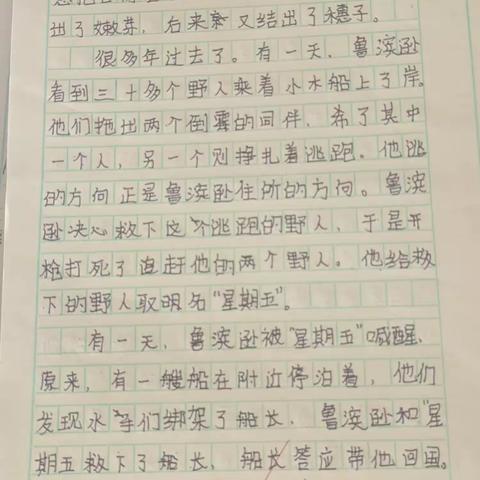 出了嫩芽，后来又结出了穗子。
很多年过去了。有一天，鲁滨逊
看到三十多个野人乘着小木船上了岸。
他们拖出两个倒霉的同伴，杀了其中
一个人，另一个则挣扎着逃跑，他逃
的方向正是鲁滨逊住所的方向。鲁滨
逊决心救下这个逃跑的野人，于是开
枪打死了追赶他的两个野人。他给救
下的野人取明名“星期五”。
有一天，鲁滨逊被“星期五”喊醒，
原来，有一艘船在附近停泊着，他们
发现水手们绑架了船长，鲁滨逊和“星
期五救下了船长，船长答应带他回国。